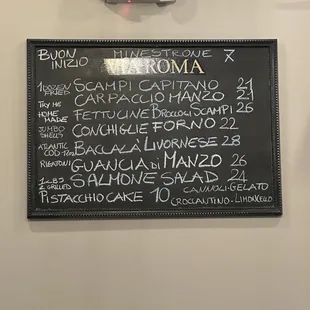 BUON INIZIO MINESTRONE 7
VIA ROMA
1 DOZEN FRIED SCAMPI CAPITANO 21
CARPACCIO MANZO 21
TRY ME HOME MADE FETTUCINE BROCCOLI SCAMPI 26
JUMBO SHELLS CONCHIGLIE FORNO 22
ATLANTIC COD BACCALÀ LIVORNESE 28
RIGATONI GUANCIA DI MANZO 26
GRILLED SALMONE SALAD 24
PISTACCHIO CAKE 10 CANNOLI-GELATO
CROCCANTINO-LIMONCELLO